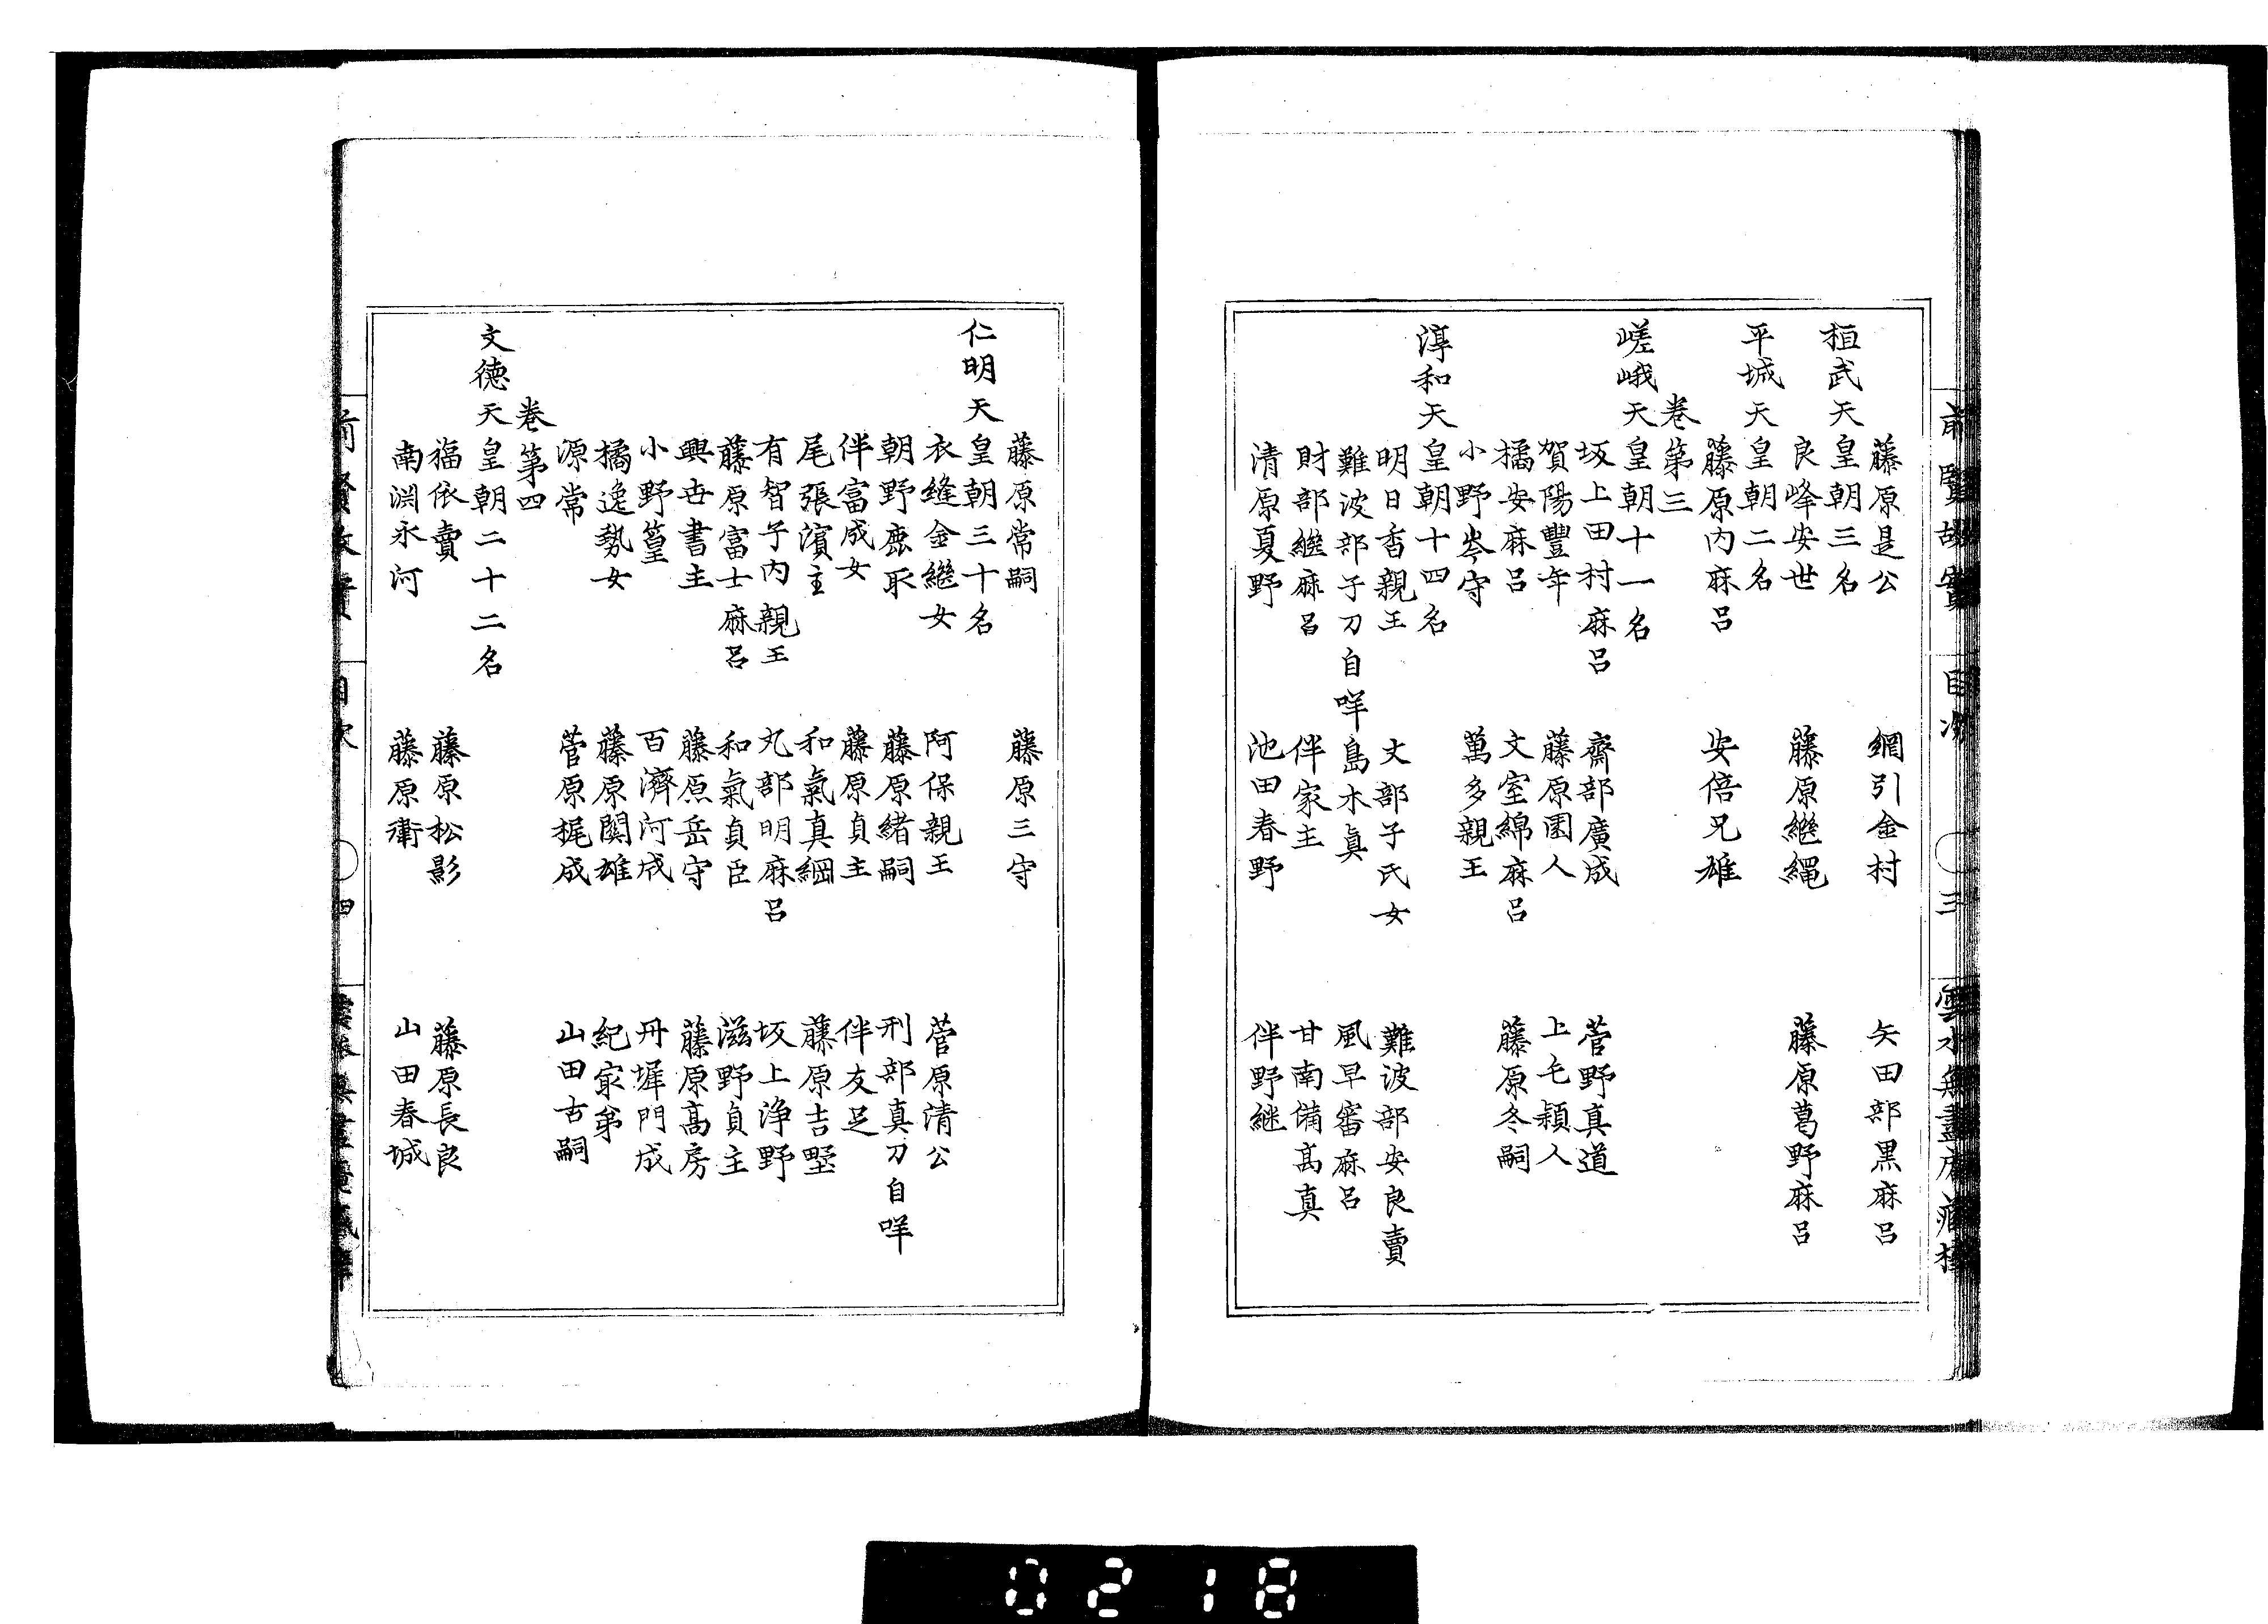 前賢故實 目次 三 雲水無盡庵藏
藤原是公 網引金村 矢田部黒麻呂
桓武天皇朝三名
良峰安世 藤原繼縄 藤原葛野麻呂
平城天皇朝二名
藤原内麻呂 安倍兄雄
卷第三
嵯峨天皇朝十一名
坂上田村麻呂 齋部廣成 菅野真道
賀陽豐年 藤原園人 上毛穎人
橘安麻呂 文室綿麻呂 藤原冬嗣
小野岑守 萬多親王
淳和天皇朝十四名
明日香親王 丈部子氏女 難波部安良賣
難波部子刀自咩 島木真 風早審麻呂
財部繼麻呂 伴家主 甘南備高真
清原夏野 池田春野 伴野継
藤原常嗣 藤原三守
仁明天皇朝三十名
衣縫金繼女 阿保親王 菅原清公
朝野鹿取 藤原緒嗣 刑部真刀自咩
伴富成女 藤原貞主 伴友足
尾張濱主 和氣真綱 藤原吉野
有智子内親王 丸部明麻呂 坂上浄野
藤原富士麻呂 和氣貞臣 滋野貞主
興世書主 藤原岳守 藤原高房
小野篁 百濟河成 丹墀門成
橘逸勢女 藤原関雄 紀家弟
源常 菅原梶成 山田古嗣
卷第四
文徳天皇朝二十二名
福依賣 藤原松影 藤原長良
南淵永河 藤原衛 山田春城
前賢故實 目次 四
0218